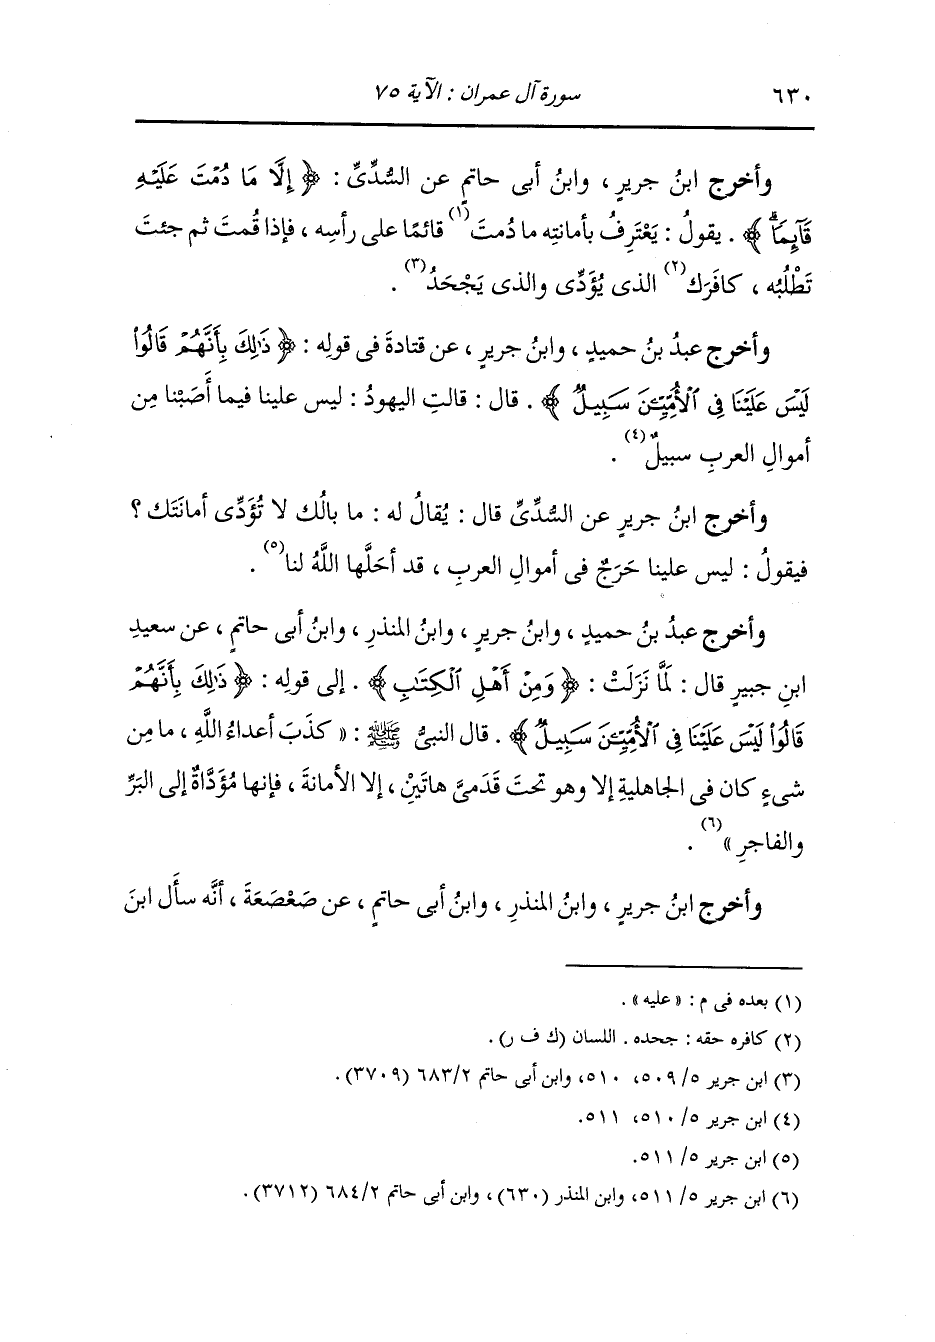 ٦٣٠ سورة آل عمران : الآية ٧٥
وأخرج ابنُ جريرٍ ، وابنُ أبى حاتمٍ عن السُّدِّىِّ : ﴿ إِلَّا مَا دُمْتَ عَلَيْهِ
قَآئِمًاۗ ﴾ . يقولُ : يَعْتَرِفُ بأمانتِه ما دُمتَ(١) قائمًا على رأسِه ، فإذا قُمتَ ثم جئتَ
تَطْلُبُه ، كافَرَك(٢) الذى يُؤَدِّى والذى يَجْحَدُ(٣) .
وأخرج عبدُ بنُ حميدٍ ، وابنُ جريرٍ ، عن قتادةَ فى قولِه : ﴿ ذَٰلِكَ بِأَنَّهُمْ قَالُوا۟
لَيْسَ عَلَيْنَا فِى ٱلْأُمِّيِّـۧنَ سَبِيلٌ ﴾ . قال : قالتِ اليهودُ : ليس علينا فيما أَصَبْنا مِن
أموالِ العربِ سبيلٌ(٤) .
وأخرج ابنُ جريرٍ عن السُّدِّىِّ قال : يُقالُ له : ما بالُك لا تُؤَدِّى أمانَتَك ؟
فيقولُ : ليس علينا حَرَجٌ فى أموالِ العربِ ، قد أحَلَّها اللَّهُ لنا(٥) .
وأخرج عبدُ بنُ حميدٍ ، وابنُ جريرٍ ، وابنُ المنذرِ ، وابنُ أبى حاتمٍ ، عن سعيدِ
ابنِ جبيرٍ قال : لمَّا نَزَلَتْ : ﴿ وَمِنْ أَهْلِ ٱلْكِتَٰبِ ﴾ . إلى قولِه : ﴿ ذَٰلِكَ بِأَنَّهُمْ
قَالُوا۟ لَيْسَ عَلَيْنَا فِى ٱلْأُمِّيِّـۧنَ سَبِيلٌ ﴾ . قال النبىُّ ﷺ : « كذَبَ أعداءُ اللَّهِ ، ما مِن
شىءٍ كان فى الجاهليةِ إلا وهو تحتَ قدَمىَّ هاتَيْنِ ، إلا الأمانةَ ، فإنها مُؤَدَّاةٌ إلى البَرِّ
والفاجرِ »(٦) .
وأخرج ابنُ جريرٍ ، وابنُ المنذرِ ، وابنُ أبى حاتمٍ ، عن صَعْصَعَةَ ، أنَّه سأَل ابنَ
(١) بعده فى م : « عليه » .
(٢) كافره حقه : جحده . اللسان (ك ف ر) .
(٣) ابن جرير ٥/ ٥٠٩، ٥١٠، وابن أبى حاتم ٦٨٣/٢ (٣٧٠٩).
(٤) ابن جرير ٥/ ٥١٠، ٥١١.
(٥) ابن جرير ٥/ ٥١١.
(٦) ابن جرير ٥/ ٥١١، وابن المنذر (٦٣٠) ، وابن أبى حاتم ٦٨٤/٢ (٣٧١٢).